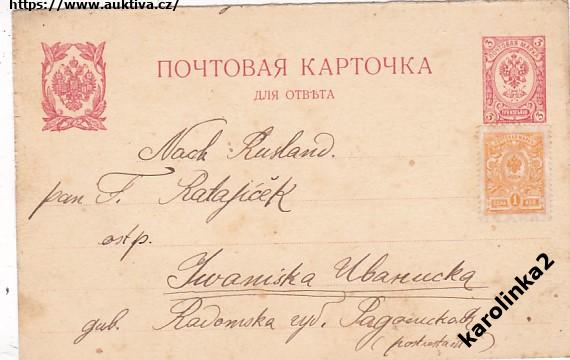 https://www.auktiva.cz/
ПОЧТОВАЯ КАРТОЧКА
ДЛЯ ОТВѢТА
3 ПОЧТОВАЯ МАРКА 3
3 3
1
Nach Rusland.
pan F. Ratajiček
ostp.
Iwaniska Иваниска
губ. Radomska губ. Радомская
karolinka2